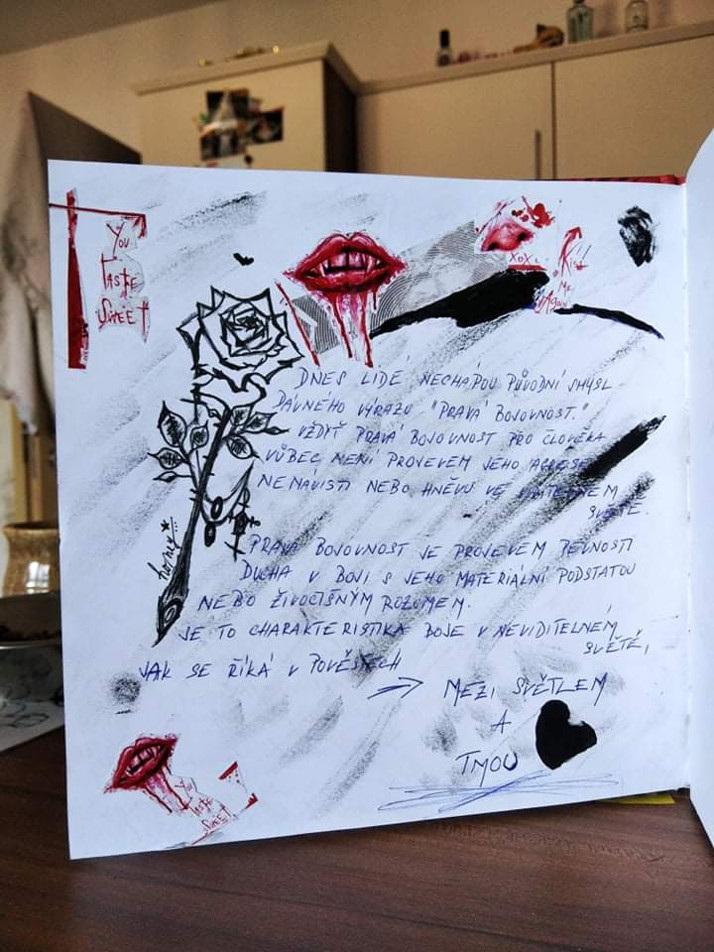 You
Taste
Sweet
XoXo
Kiss
Me
Again
DNES LIDÉ NECHÁPOU PŮVODNÍ SMYSL
DÁVNÉHO VÝRAZU "PRAVÁ BOJOVNOST."
VŽDYŤ PRAVÁ BOJOVNOST PRO ČLOVĚKA
VŮBEC NENÍ PROJEVEM JEHO AGRESE
NENÁVISTI NEBO HNĚVU VE VIDITELNÉM
SVĚTĚ.
PRAVÁ BOJOVNOST JE PROJEVEM PEVNOSTI
DUCHA V BOJI S JEHO MATERIÁLNÍ PODSTATOU
NEBO ŽIVOČIŠNÝM ROZUMEM.
JE TO CHARAKTERISTIKA BOJE V NEVIDITELNÉM
SVĚTĚ,
JAK SE ŘÍKÁ V POVĚSTECH
→ MEZI SVĚTLEM
A
TMOU
You
Taste
Sweet